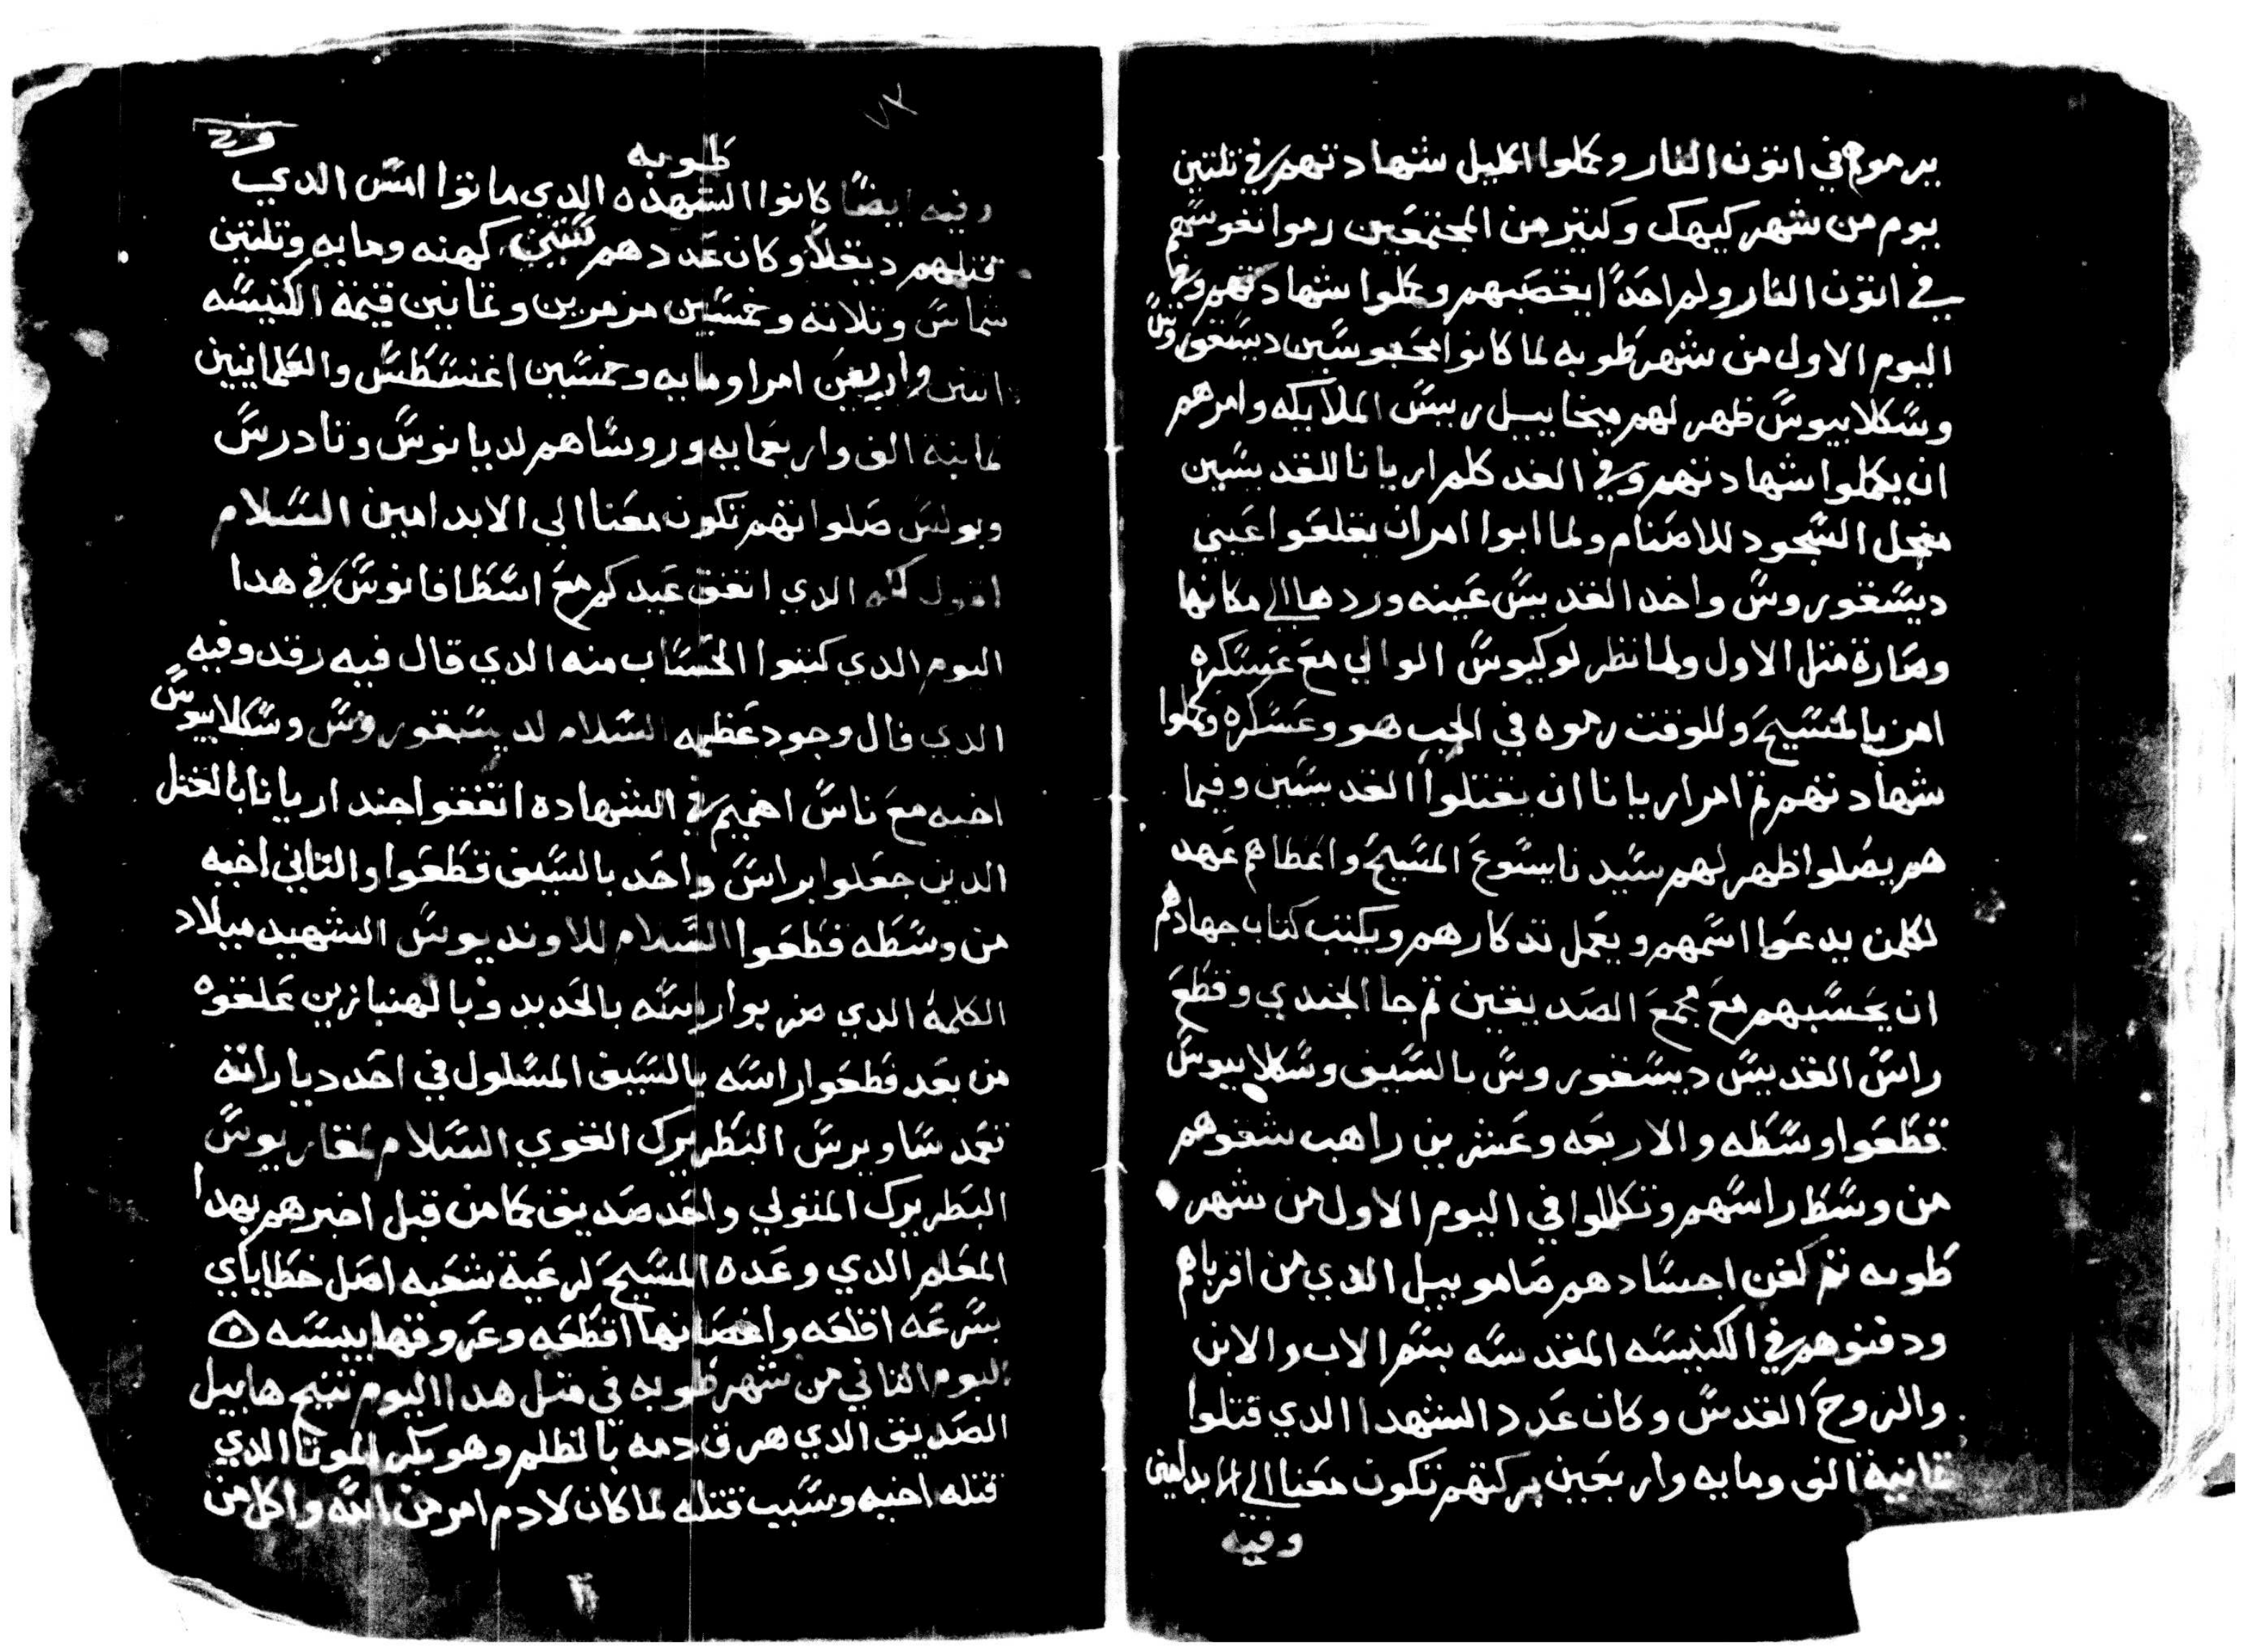 يرموهم في اتون النار وكملوا اكليل شهادتهم في تلتين
يوم من شهر كيهك وكتير من المجتمعين رموا نفوسهم
في اتون النار ولم احدًا يغصبهم وكملوا شهادتهم وفي
اليوم الاول من شهر طوبه لما كانوا محبوسين ديسقوروس
وسكلابيوس ظهر لهم ميخاييل رييس الملايكه وامرهم
ان يكملوا شهادتهم وفي الغد كلم اريانا للقديسين
مجل السجود للاصنام ولما ابوا امر ان يقلعوا عيني
ديسقوروس واخد القديس عينه وردها الي مكانها
وصارة متل الاول ولما نظر لوكيوس الوالي مع عسكره
امن بالمسيح وللوقت رموه في الجب هو وعسكره وكملوا
شهادتهم تم امر اريانا ان يقتلوا القديسين وفيما
هم يصلوا ظهر لهم سيدنا يسوع المسيح واعطاهم عهد
لكلمن يدعوا اسمهم ويعمل تدكارهم ويكتب كتاب جهادهم
ان يحسبهم مع مجمع الصديقين تم جا الجندي وقطع
راس القديس ديسقوروس بالسيف وسكلابيوس
قطعوا وسطه والاربعه وعشرين راهب شقوهم
من وسط راسهم وتكللوا في اليوم الاول من شهر
طوبه تم كفن اجسادهم صامويل الدي من اقرباهم
ودفنوهم في الكنيسه المقدسه بسم الاب والابن
والروح القدس وكان عدد الشهدا الدي قتلوا
تمانية الف ومايه واربعين بركتهم تكون معنا الي الابد امين
وفيه
طوبه
وفيه ايضًا كانوا الشهده الدي ماتوا امس الدي
قتلهم دقلا وكان عددهم كهنه ومايه وتلتين
شماس وتلاته وخمسين مزمرين وتمانين قيمة الكنيسه
اتنين واربعين امرا ومايه وخمسين اغنسطس والعلمانيين
تمانية الف واربعمايه وروساهم لديانوس وتادرس
وبولس صلواتهم تكون معنا الي الابد امين السلام
اقول لكم الدي اتفق عيدكم مع اسطافانوس في هدا
اليوم الدي كتبوا الحساب منه الدي قال فيه رقد وفيه
الدي قال وجود عظمه السلام لديسقوروس وسكلابيوس
اخيه مع ناس اخميم في الشهاده اتفقوا جند اريانا بالقتل
الدين جعلوا براس واحد بالسيف قطعوا والتاني اخيه
من وسطه قطعوا السلام للاونديوس الشهيد ميلاد
الكلمة الدي ضربوا راسه بالحديد وبالهنبازين علقوه
من بعد قطعوا راسه بالسيف المسلول في احد دياراته
تعمد ساويرس البطريرك القوي السلام لمقاريوس
البطريرك المتولي واحد صديق كما من قبل اخبرهم بهدا
المعلم الدي وعده المسيح لرعية شعبه اصل خطاياي
بسرعه اقلعه واغصانها اقطعه وعروقها يبسه
اليوم التاني من شهر طوبه في متل هدا اليوم تنيح هابيل
الصديق الدي هرق دمه بالظلم وهو بكر الموتا الدي
قتله اخيه وسبب قتله لما كان لادم امر من الله واكل من